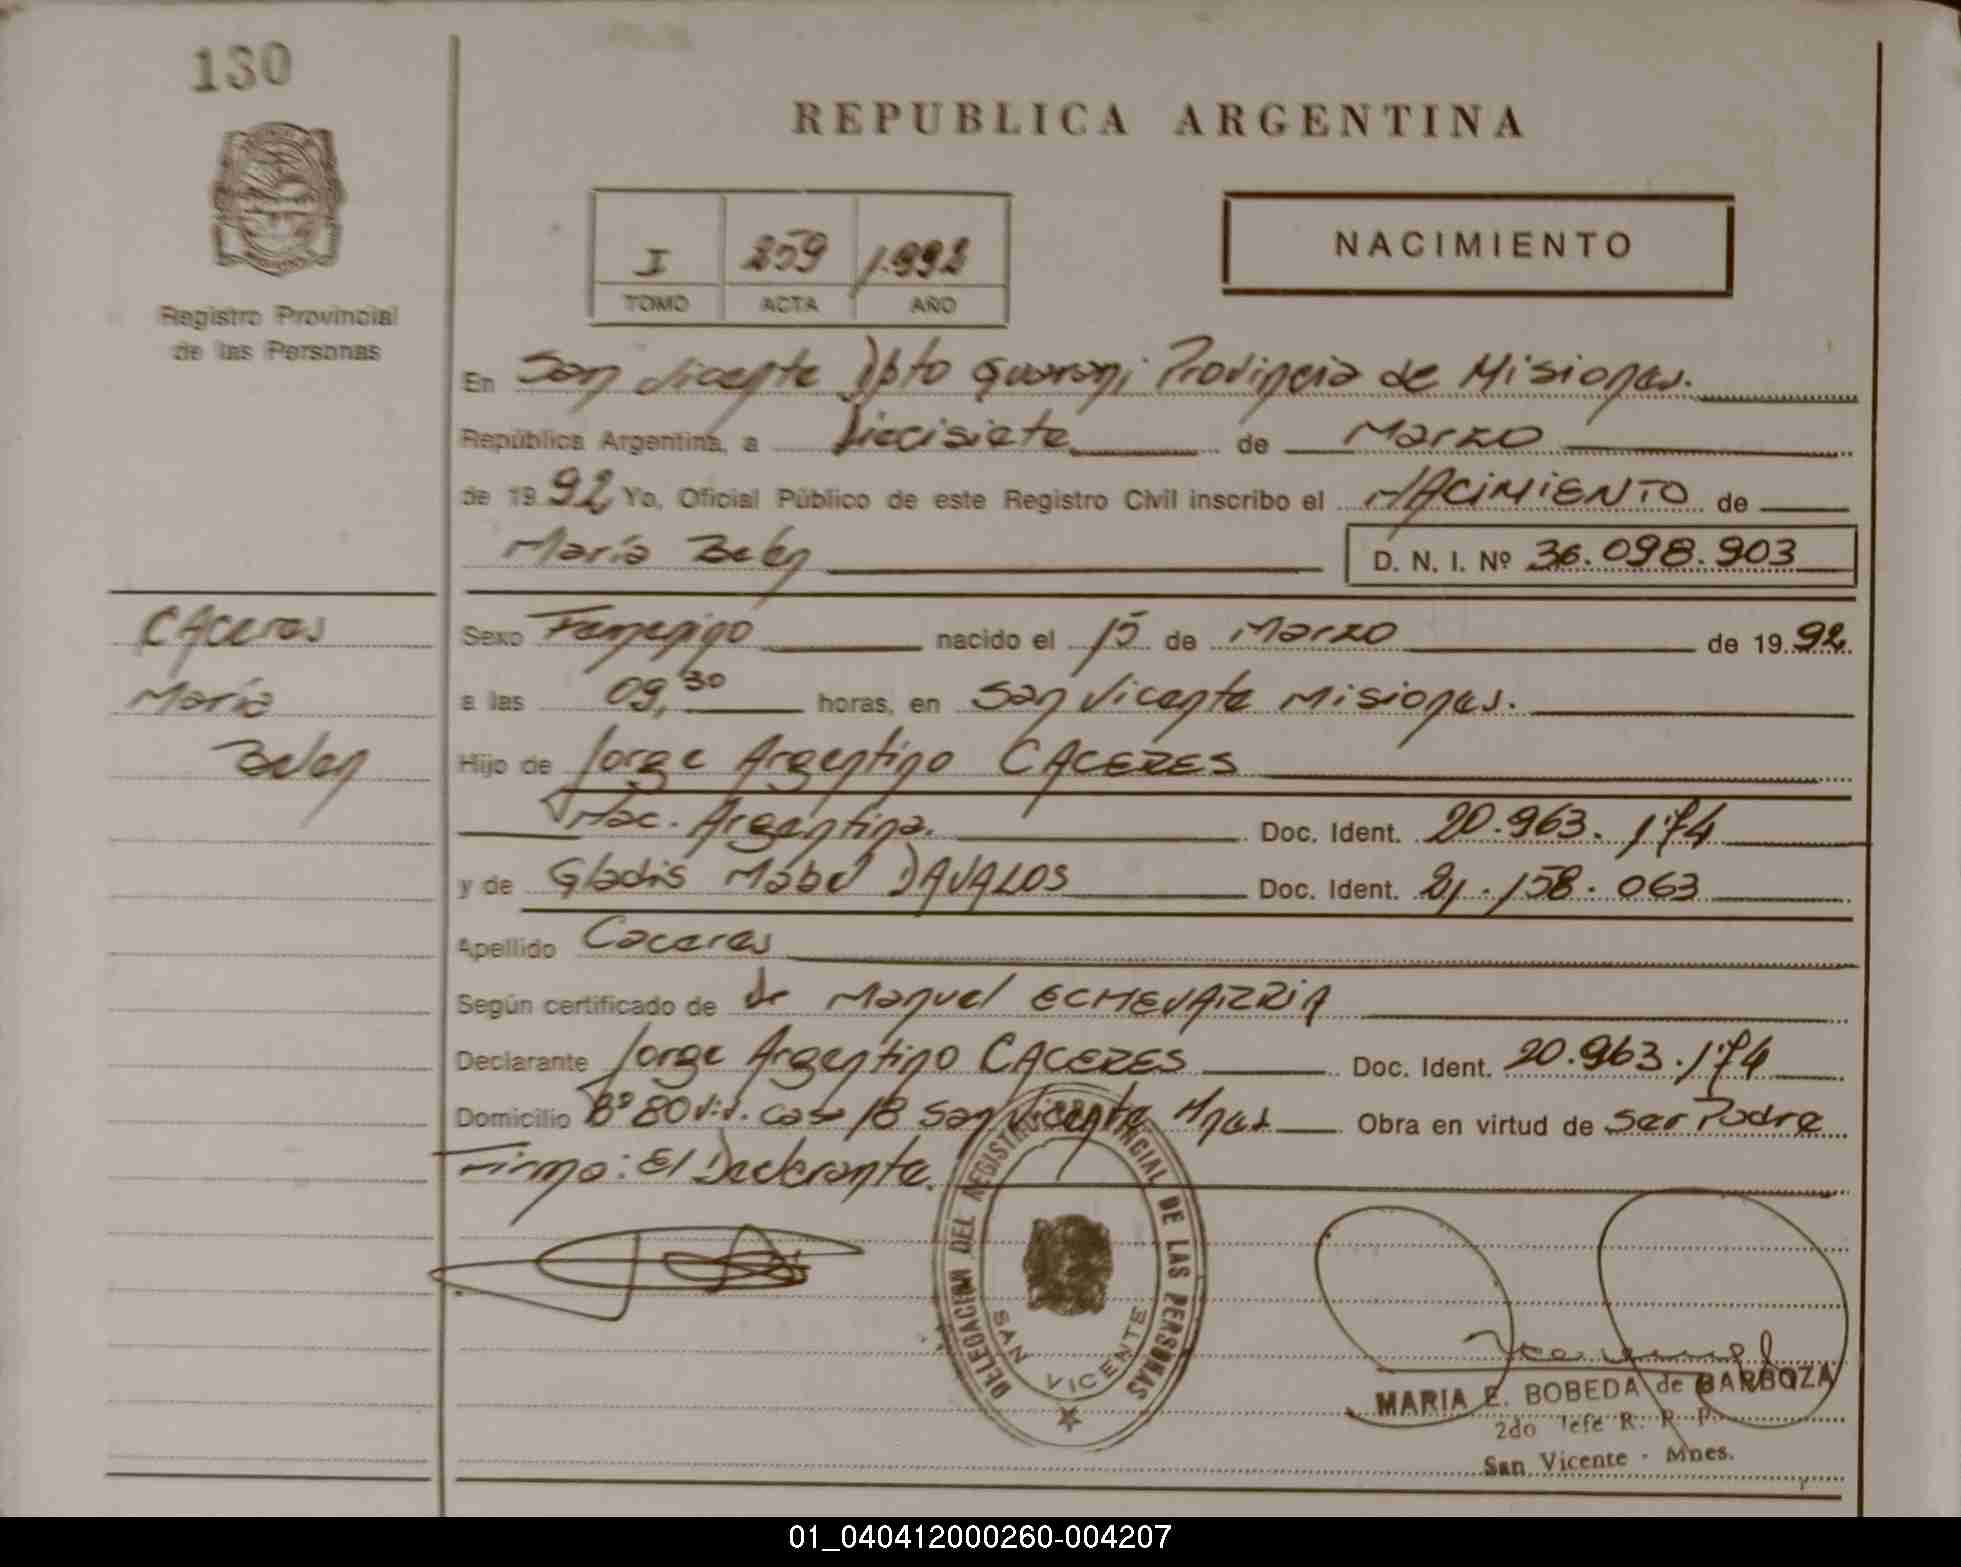 130
REPUBLICA ARGENTINA
Registro Provincial
de las Personas
I 259 1.992
TOMO ACTA AÑO
NACIMIENTO
En San Vicente Dpto Guarani Provincia de Misiones.
República Argentina, a Diecisiete de Marzo
de 1992 Yo, Oficial Público de este Registro Civil inscribo el NACIMIENTO de
María Belen D. N. I. Nº 36.098.903
Caceres
María
Belen
Sexo Femenino nacido el 15 de Marzo de 1992
a las 09,30 horas, en San Vicente Misiones.
Hijo de Jorge Argentino CACERES
Nac. Argentina. Doc. Ident. 20.963.174
y de Gladis Mabel DAVALOS Doc. Ident. 21.158.063
Apellido Caceres
Según certificado de Dr Manuel ECHEVARRIA
Declarante Jorge Argentino CACERES Doc. Ident. 20.963.174
Domicilio Bº 80 viv. casa 18 San Vicente Mnes Obra en virtud de ser Padre
Firma: El Declarante.
DELEGACION DEL REGISTRO PROVINCIAL DE LAS PERSONAS
SAN VICENTE
MARIA E. BOBEDA de BARBOZA
2do Jefe R. P. P.
San Vicente - Mnes.
01_040412000260-004207